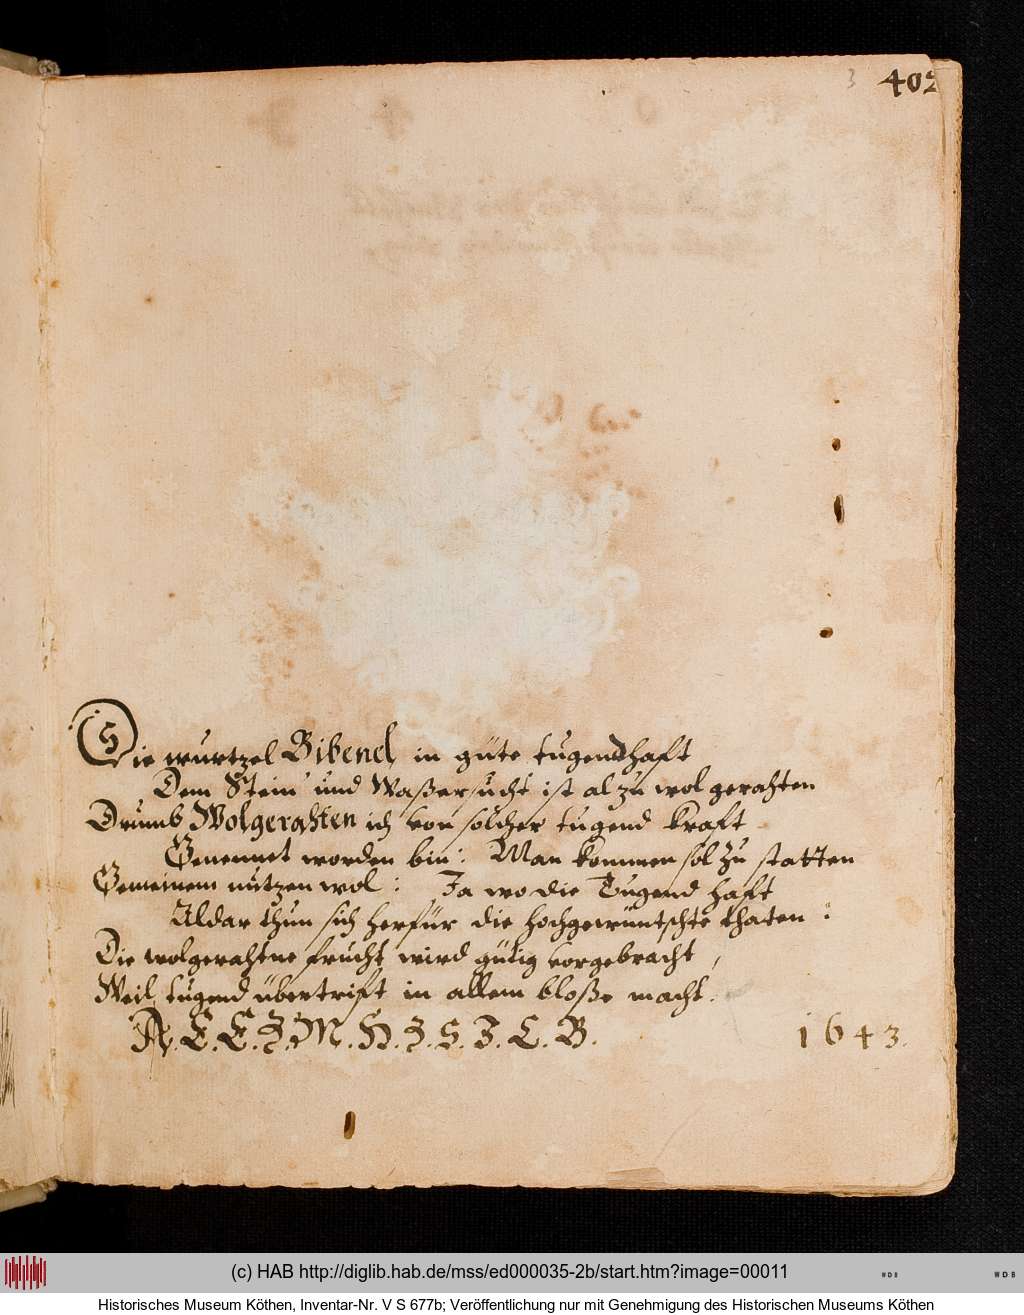 3 402
Die wurtzel Bibenel, in güte tugendhaft
Dem Stein' und Waßersucht ist alzu wol gerahten
Drumb Wolgerahten ich von solcher tugend kraft
Genennet worden bin: Man kommen sol zu statten
Gemeinem nutzen wol: Ja wo die Tugend haft
Aldar thun sich herfür die hochgewüntschte thaten:
Die wolgerahtne frucht wird gültig vorgebracht,
Weil tugend übertrift in allem bloße macht.
1643.
(c) HAB http://diglib.hab.de/mss/ed000035-2b/start.htm?image=00011
WDB
WDB
Historisches Museum Köthen, Inventar-Nr. V S 677b; Veröffentlichung nur mit Genehmigung des Historischen Museums Köthen